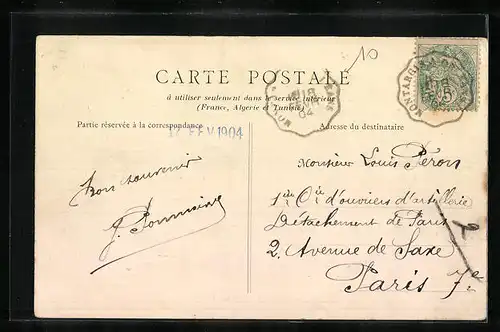 10
CARTE POSTALE
à utiliser seulement dans le service intérieur
(France, Algérie et Tunisie)
MONTARGIS
18
04
5
Partie réservée à la correspondance
Adresse du destinataire
17 FEV 1904
Bon souvenir
Monsieur Louis Péron
1ère Cie d'ouvriers d'artillerie
Détachement de Paris
2, Avenue de Saxe
Paris 7e